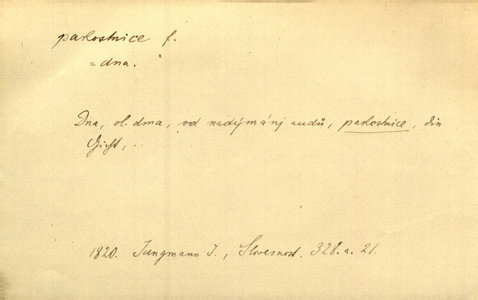 pakostnice f.
= dna.
Dna, ob. dma, od nadýmánj audů, pakostnice, die
Gicht, ..
1820. Jungmann J., Slovesnost. 328. a. 21.